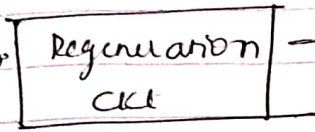 Regeneration
CKt